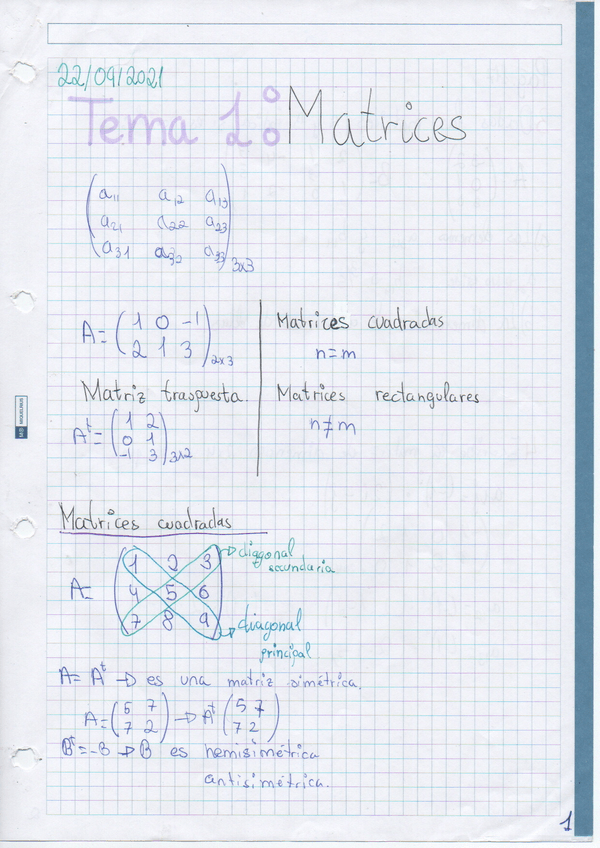 22/09/2021
Tema 1: Matrices
a11 a12 a13
a21 a22 a23
a31 a32 a33 3x3
A = (1 0 -1
2 1 3) 2x3
Matriz traspuesta.
A^t = (1 2
0 1
-1 3) 3x2
Matrices cuadradas
n=m
Matrices rectangulares
n≠m
MIQUELRIUS
Matrices cuadradas
A = (1 2 3
4 5 6
7 8 9)
→ diagonal
secundaria
→ diagonal
principal
A = A^t → es una matriz simétrica.
A = (5 7
7 2) → A^t (5 7
7 2)
B^t = -B → B es hemisimétrica
antisimétrica.
1